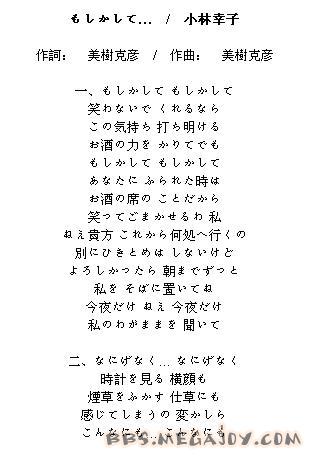 もしかして… / 小林幸子
作詞： 美樹克彦 / 作曲： 美樹克彦
一、もしかして もしかして
笑わないで くれるなら
この気持ち 打ち明ける
お酒の力を かりてでも
もしかして もしかして
あなたに ふられた時は
お酒の席の ことだから
笑ってごまかせるわ 私
ねえ貴方 これから何処へ行くの
別にひきとめは しないけど
よろしかったら 朝までずっと
私を そばに置いてね
今夜だけ ねえ 今夜だけ
私のわがままを 聞いて
二、なにげなく… なにげなく
時計を見る 横顔も
煙草をふかす 仕草にも
感じてしまうの 変かしら
こんなにも… こんなにも
BBS.MEGAJOY.COM